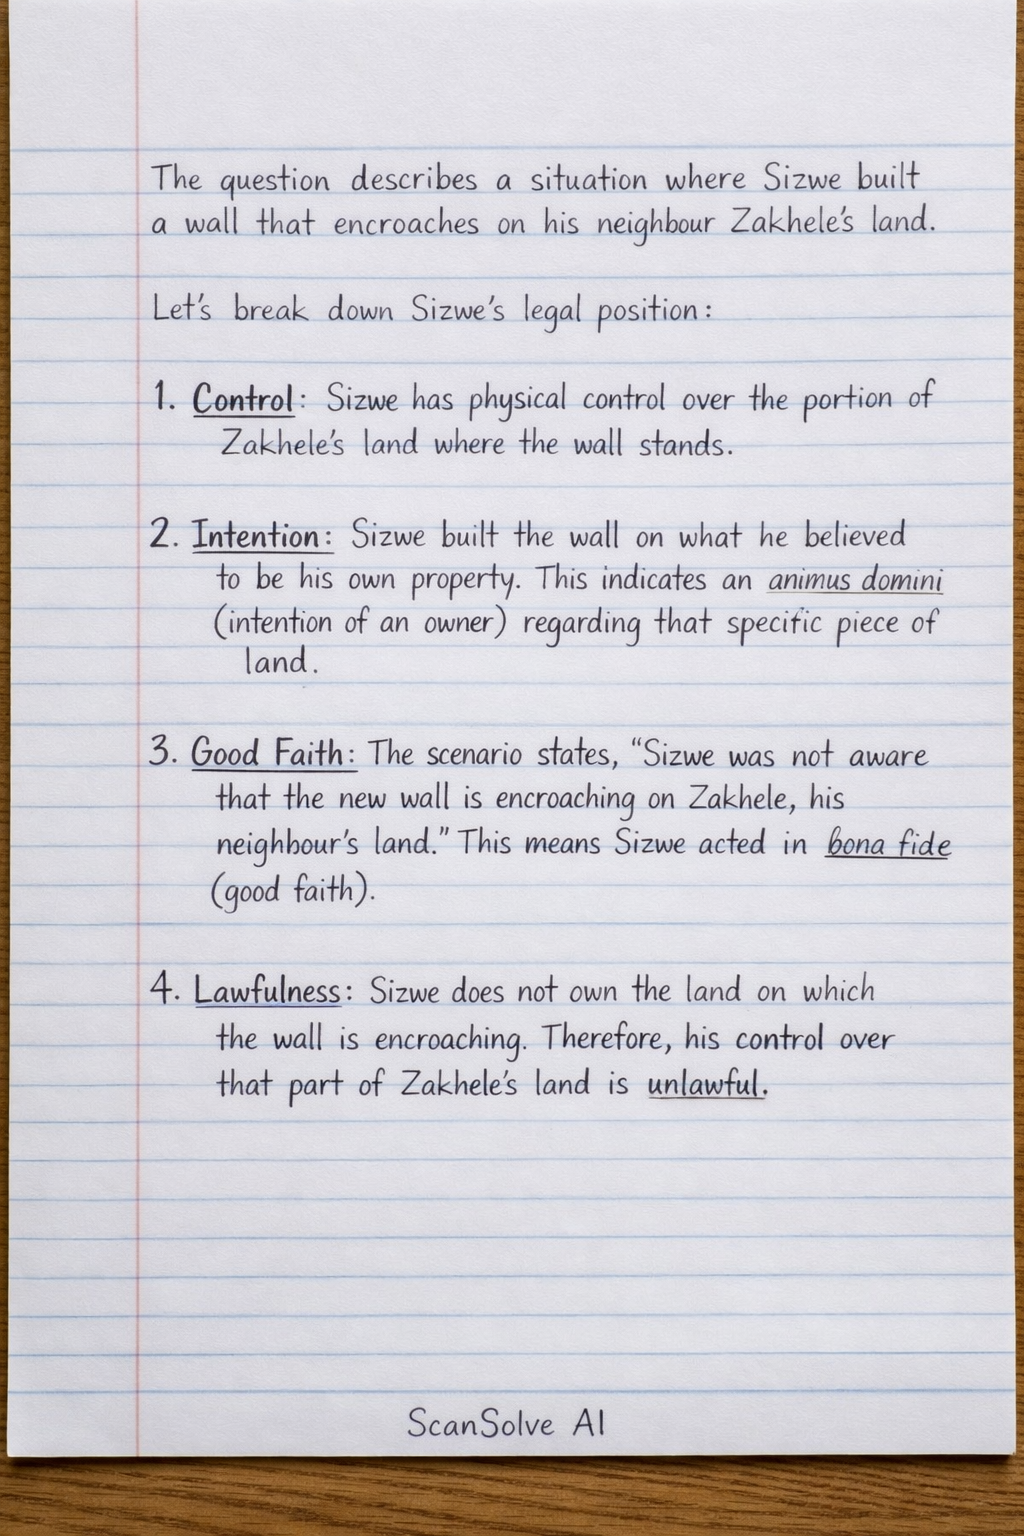 The question describes a situation where Sizwe built
a wall that encroaches on his neighbour Zakhele's land.
Let's break down Sizwe's legal position:
1. Control: Sizwe has physical control over the portion of
Zakhele's land where the wall stands.
2. Intention: Sizwe built the wall on what he believed
to be his own property. This indicates an animus domini
(intention of an owner) regarding that specific piece of
land.
3. Good Faith: The scenario states, "Sizwe was not aware
that the new wall is encroaching on Zakhele, his
neighbour's land." This means Sizwe acted in bona fide
(good faith).
4. Lawfulness: Sizwe does not own the land on which
the wall is encroaching. Therefore, his control over
that part of Zakhele's land is unlawful.
ScanSolve AI